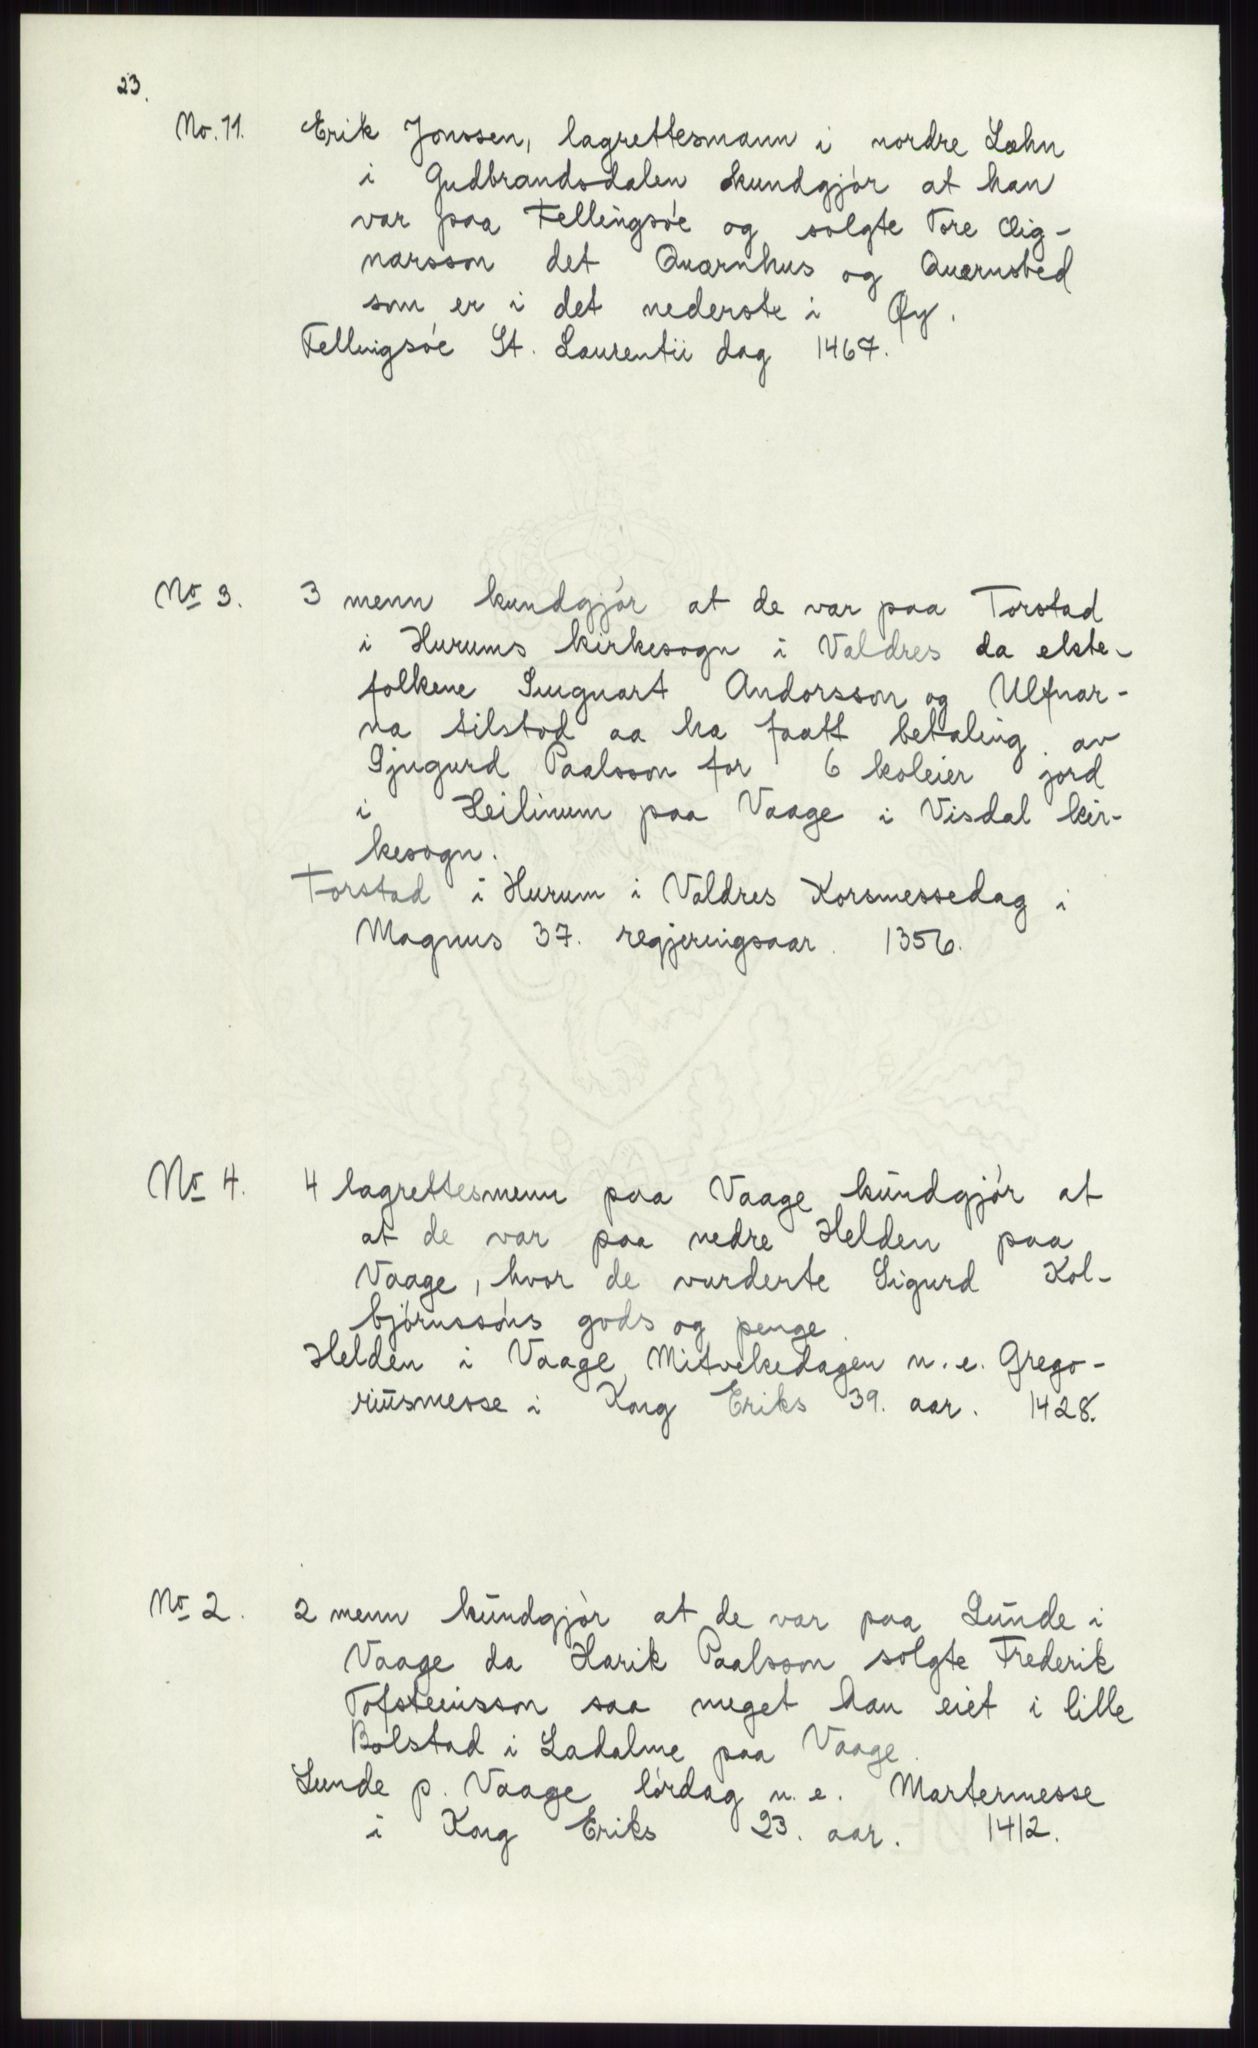 23.
No. 11. Erik Jonssen, lagrettesmann i nordre Læhn
i Gudbrandsdalen kundgjór at han
var paa Fellingsóe og solgte Tore Oig-
narsson det Quærnhus og Quærnsted
som er i det nederste i Øy.
Fellingsóe St. Laurentii dag 1467.
No 3. 3 menn kundgjór at de var paa Torstad
i Hurums kirkesogn i Valdres da ekte-
folkene Andorsson og Ulfnar-
na tilstod aa ha faatt betaling av
Gjugurd Paalsson for 6 koleier jord
i Heilinum paa Vaage i Visdal kir-
kesogn.
Torstad i Hurum i Valdres Korsmessedag i
Magnus 37. regjeringsaar. 1356.
No 4. 4 lagrettesmenn paa Vaage kundgjór at
at de var paa nedre Helden paa
Vaage, hvor de vurderte Sigurd Kol-
bjórnssóns gods og penge.
Helden i Vaage Mitvekedagen n. e. Grego-
riusmesse i Kong Eriks 39. aar. 1428.
No 2. 2 menn kundgjór at de var paa Lunde i
Vaage da Harik Paalsson solgte Frederik
Tofsteinsson saa meget han eiet i lille
Bolstad i Ladalme paa Vaage.
Lunde p. Vaage lórdag n. e. Martermesse
i Kong Eriks 23. aar. 1412.